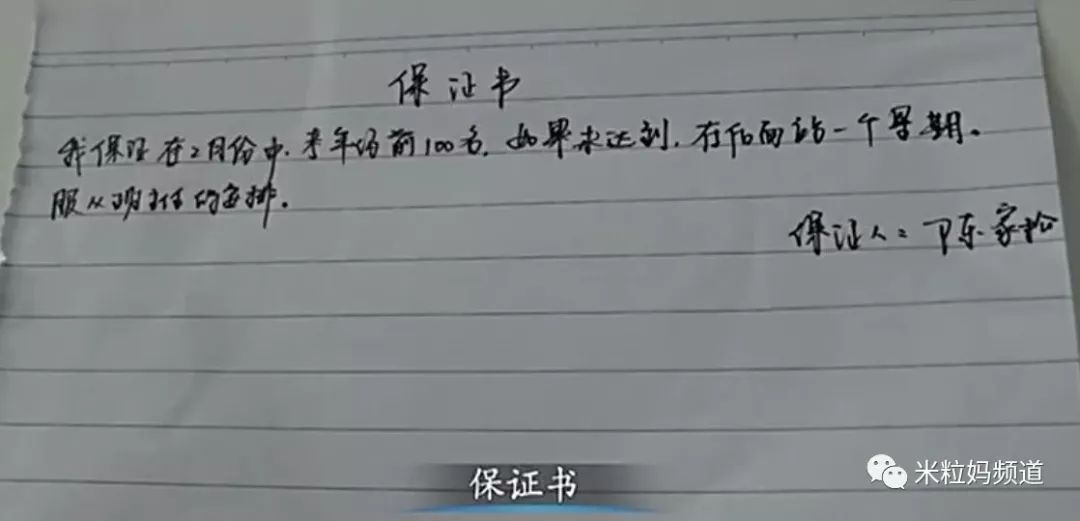 保证书
我保证在2月份中.考年级前100名.如果未达到.在后面站一个星期。
服从班主任的安排。
保证人：陈家松
保证书
米粒妈频道